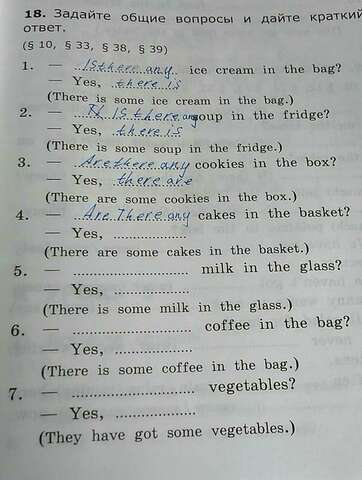 18. Задайте общие вопросы и дайте краткий
ответ.
(§ 10, § 33, § 38, § 39)
1. — Is there any ice cream in the bag?
— Yes, there is
(There is some ice cream in the bag.)
2. — Is there any soup in the fridge?
— Yes, there is
(There is some soup in the fridge.)
3. — Are there any cookies in the box?
— Yes, there are
(There are some cookies in the box.)
4. — Are There any cakes in the basket?
— Yes, ....................
(There are some cakes in the basket.)
5. — .............................. milk in the glass?
— Yes, ....................
(There is some milk in the glass.)
6. — .............................. coffee in the bag?
— Yes, ....................
(There is some coffee in the bag.)
7. — .............................. vegetables?
— Yes, ....................
(They have got some vegetables.)